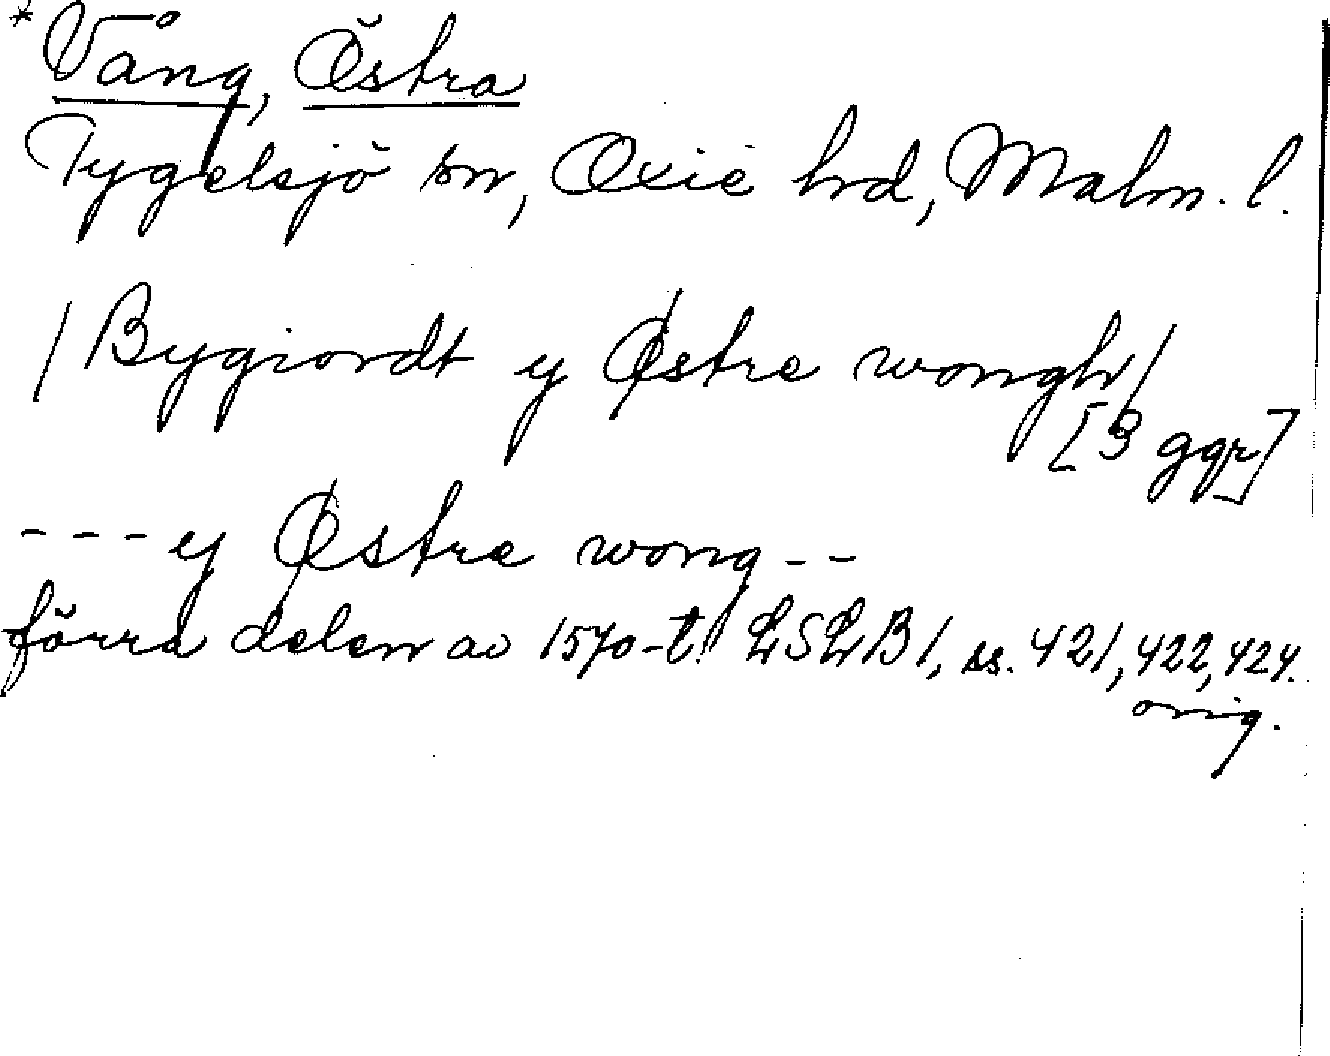 *Vång, Östra
Tygelsjö sn, Oxie hd, Malm. l.
/ Bygiordt y Østre wongh/
[3 ggr]
--- y Østre wong --
förra delen av 1570-t. LSLB1, ss. 421, 422, 424.
orig.